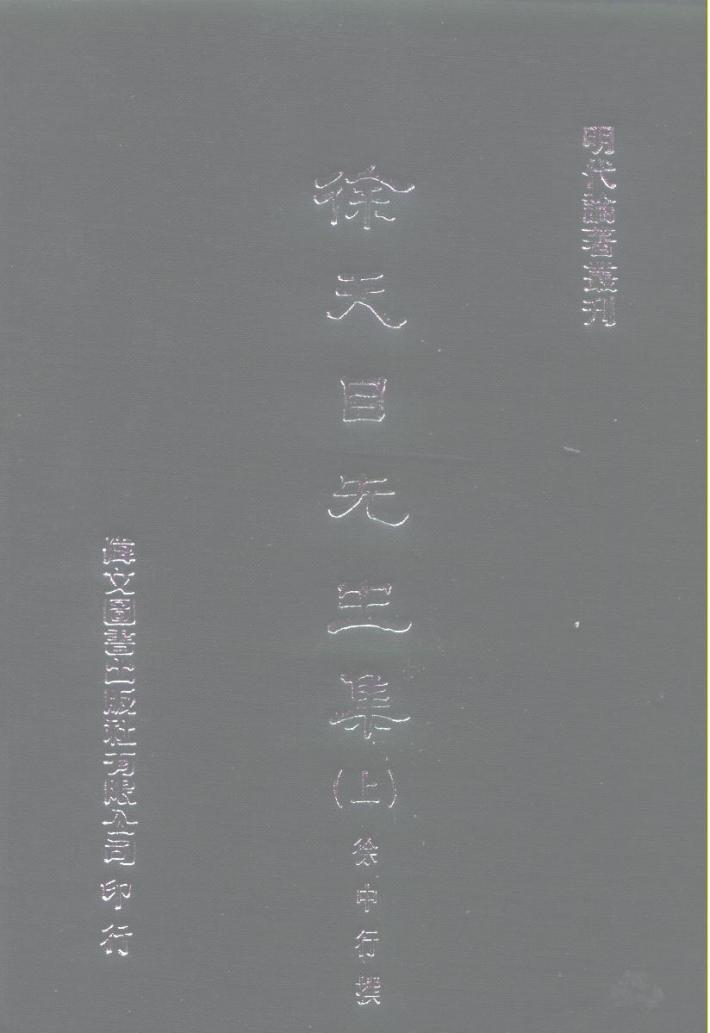 明代論著叢刊
徐天目先生集（上）徐中行撰
偉文圖書出版社有限公司印行